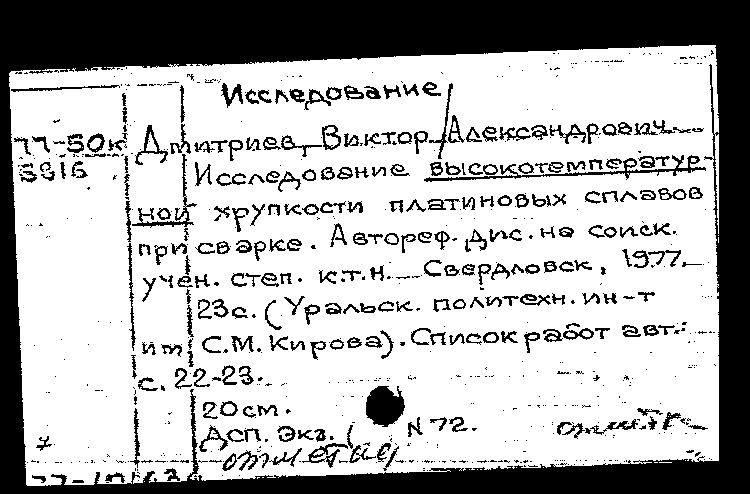 Исследование
77-50к Дмитриев, Виктор Александрович.
Исследование высокотемператур-
ной хрупкости платиновых сплавов
при сварке. Автореф. дис. на соиск.
учен. степ. к.т.н. Свердловск, 1977.
23с. (Уральск. политехн. ин-т
им С.М. Кирова). Список работ авт.:
с. 22-23.
20см.
Дсп. Экз. N 72.